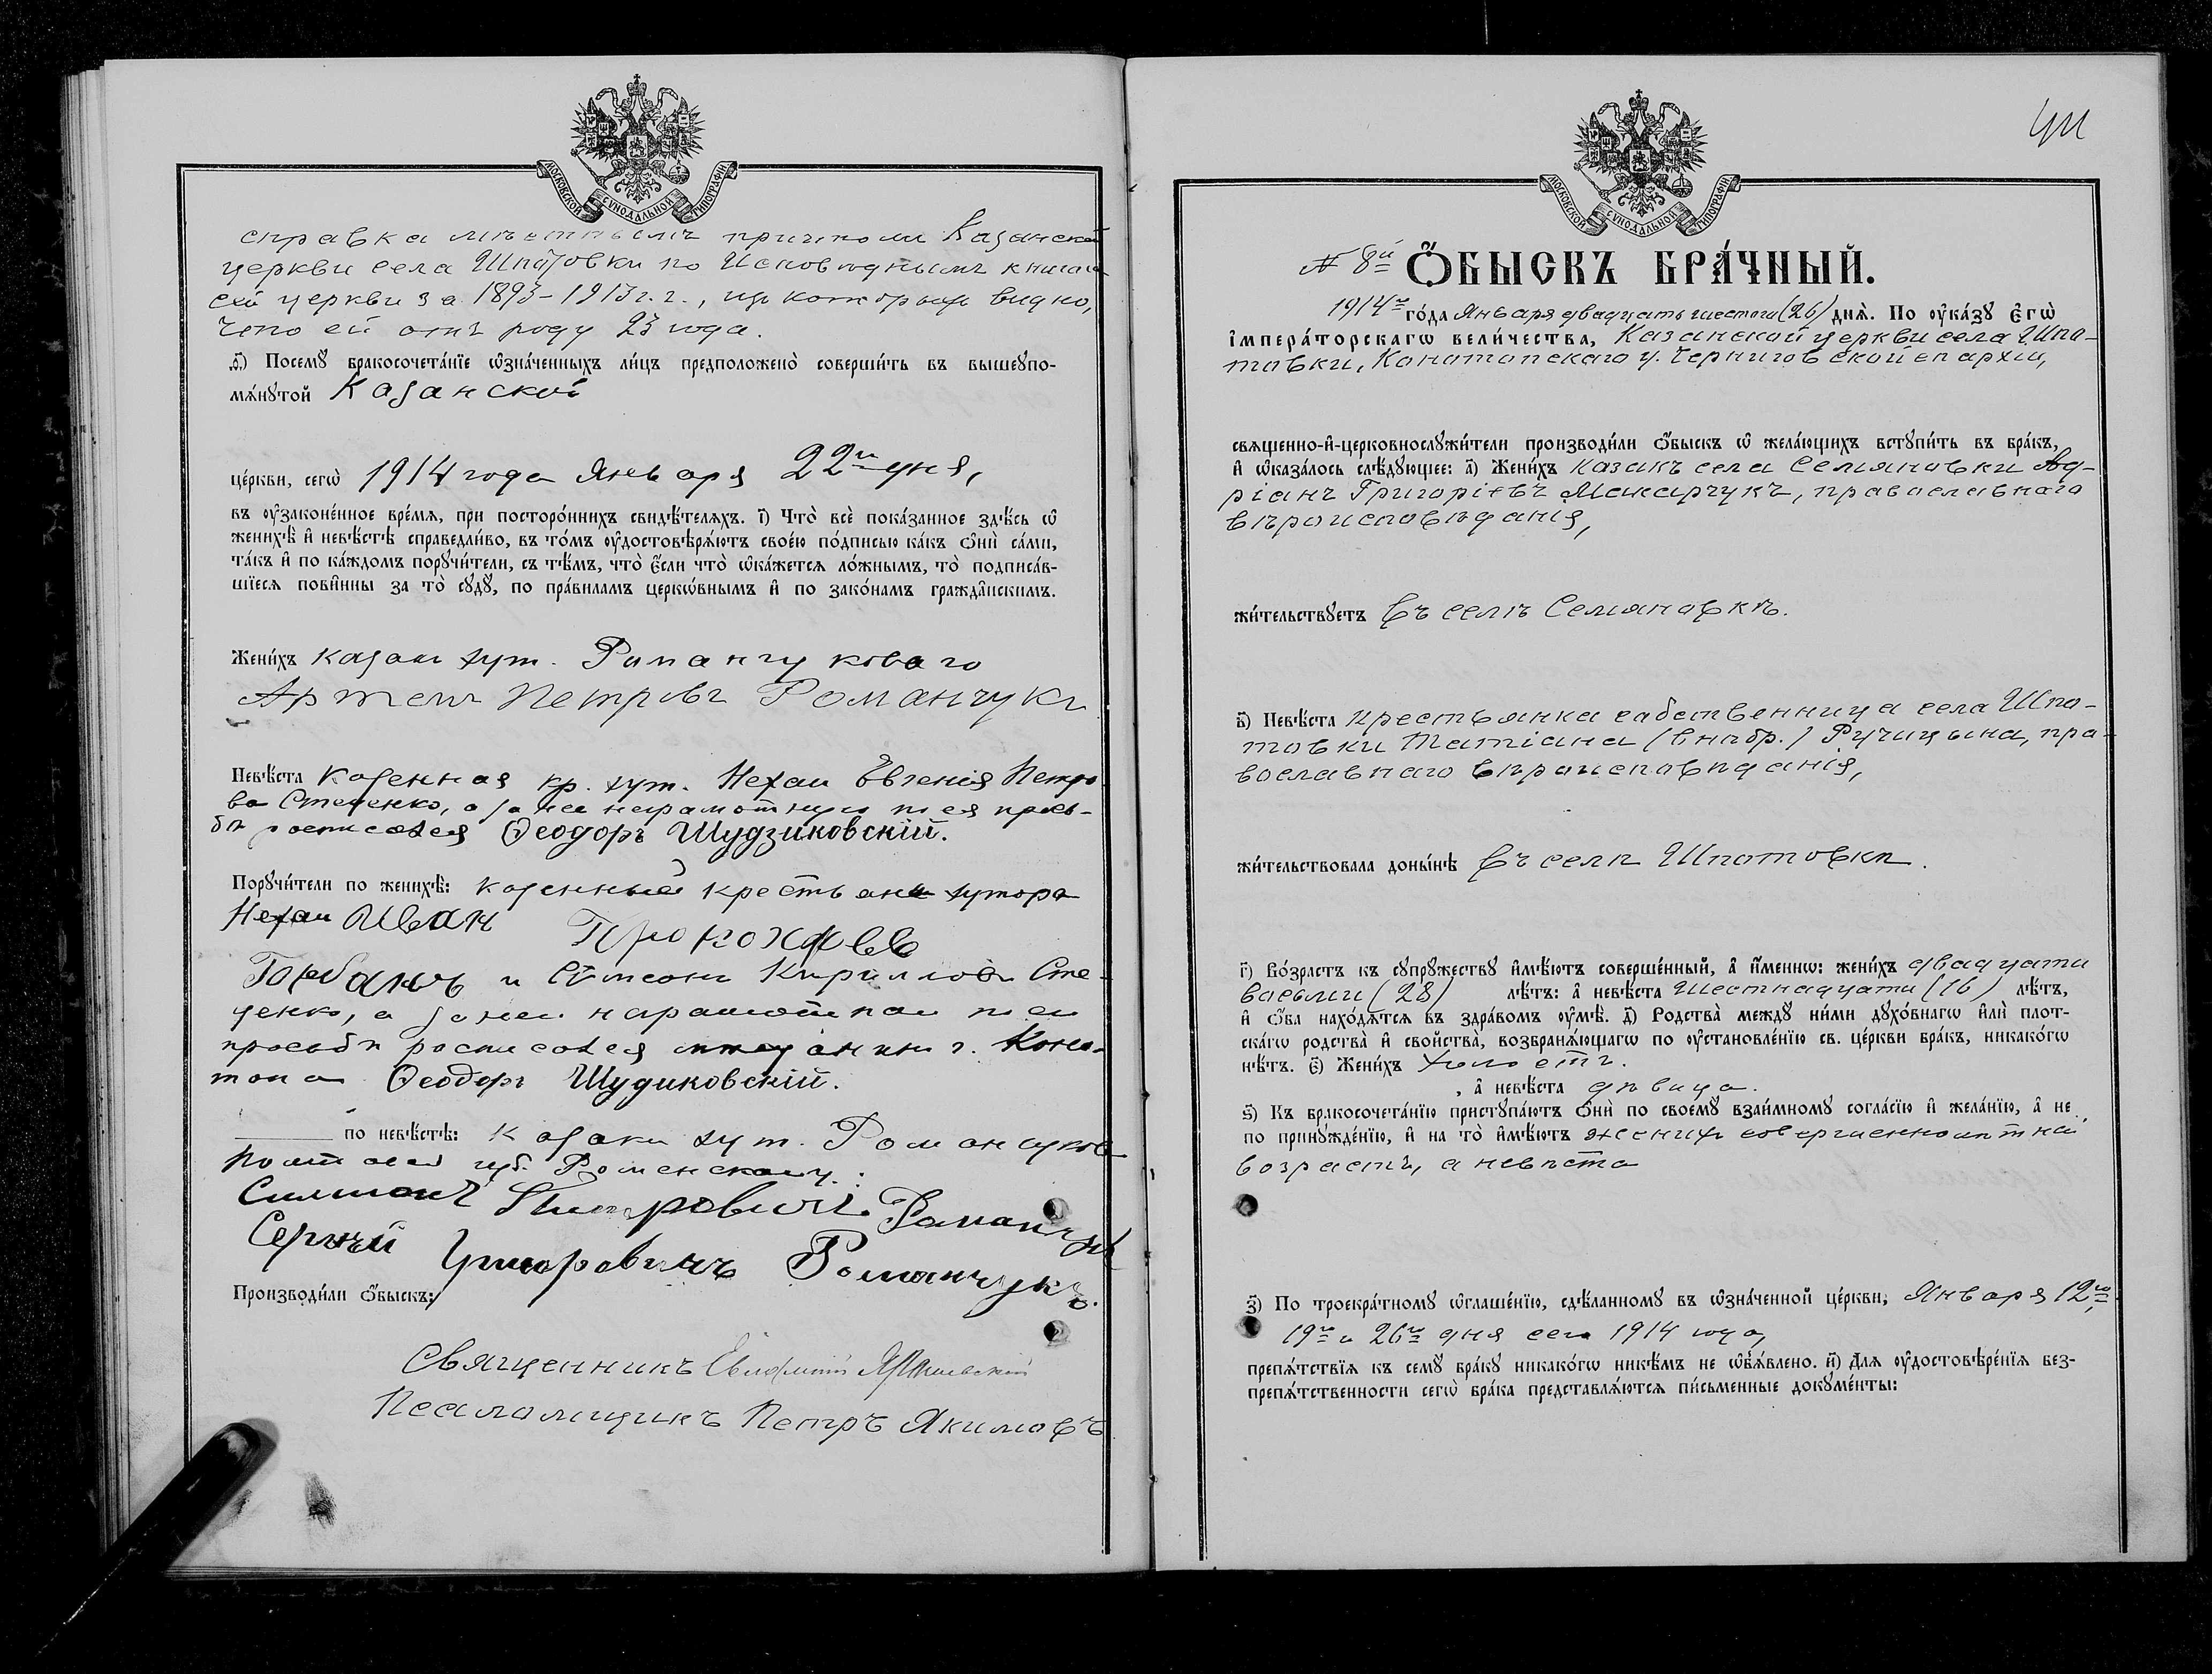 МОСКОВСКОЙ СУНОДАЛЬНОЙ ТИПОГРАФІИ
справка мѣстнымъ причтомъ Казанской
церкви села Шпатовки по Исповѣднымъ книгамъ
сей церкви за 1893-1913 г.г., изъ которыхъ видно,
что ей отъ роду 23 года.
Посемꙋ̀ бракосочета́нїе ѡ҆зна́ченныхъ ли́цъ предположено̀ соверши́ть въ вышеꙋпо-
мѧ́нꙋтой Казанской
це́ркви, сегѡ̀ 1914 года Января 22го дня,
въ ᲂу҆законе́нное вре́мѧ, при посторо́ннихъ свидѣ́телѧхъ. і҃) Что̀ всѐ пока́занное здѣ́сь ѡ҆
женихѣ̀ и҆ невѣ́стѣ справедли́во, въ то́мъ ᲂу҆достовѣрѧ́ютъ свое́ю по́дписью ка́къ ѻ҆нѝ са́ми,
та́къ и҆ по ка́ждомъ порꙋчи́тели, съ тѣ́мъ, что̀ є҆́сли что̀ ѡ҆ка́жетсѧ ло́жнымъ, то̀ подписа́в-
шїесѧ пови́нны за то̀ сꙋдꙋ̀, по пра́виламъ церкѡ́внымъ и҆ по зако́намъ гражда́нскимъ.
Жени́хъ казакъ хут. Романчуковаго
Артемъ Петровъ Романчукъ
Невѣ́ста казенная кр. хут. Нехаи Евгенія Петро-
ва Стеценко, а за нее неграмотную по ея прось-
бѣ росписался Ѳеодоръ Шудзиковскій.
Порꙋчи́тели по женихѣ̀: казенный крестьянинъ хутора
Нехаи Иванъ Прокоповъ
Горбань и Симеонъ Кирилловъ Сте-
ценко, а за неграмотнаго по его
просьбѣ росписался мѣщанинъ г. Коно-
топа Ѳеодоръ Шудиковскій.
по невѣ́стѣ: казаки хут. Романчуково
Полтавской губ. Роменскаго у.:
Симионъ Петровичъ Романчукъ
Сергѣй Григоровичъ Романчукъ.
Производи́ли ѻ҆́быскъ:
Священникъ Евфимій
Псаломщикъ Петръ Якимовъ
МОСКОВСКОЙ СУНОДАЛЬНОЙ ТИПОГРАФІИ
№ 8й Ѻ҆БЫСКЪ БРА́ЧНЫЙ.
1914го го́да Января двадцать шестого (26) днѧ̀. По ᲂу҆ка́зꙋ Є҆гѡ̀
і҆мпера́торскагѡ вели́чества, Казанской церкви села Шпа-
товки, Конотопскаго у. Черниговской епархіи,
свѧщенно-и҆-церковнослꙋжи́тели производи́ли ѻ҆́быскъ ѡ҆ жела́ющихъ встꙋпи́ть въ бра́къ,
и҆ ѡ҆каза́лось слѣ́дꙋющее: а҃) Жени́хъ казакъ села Семяновки Ад-
ріанъ Григоріевъ Макарчукъ, православнаго
вѣроисповѣданія,
жи́тельствꙋетъ въ селѣ Семяновкѣ.
в҃) Невѣ́ста крестьянка собственница села Шпа-
товки Татіана (внѣбр.) Ручицына, пра-
вославнаго вѣроисповѣданія,
жи́тельствовала доны́нѣ въ селѣ Шпатовкѣ.
г҃) Во́зрастъ къ сꙋпрꙋ́жествꙋ и҆мѣ́ютъ соверше́нный, а҆ и҆́меннѡ: жени́хъ двадцати
восьми (28) лѣ́тъ: а҆ невѣ́ста шестнадцати (16) лѣ́тъ,
и҆ ѻ҆́ба нахо́дѧтсѧ въ здра́вомъ ᲂу҆мѣ̀. д҃) Родства̀ междꙋ̀ ни́ми дꙋхо́внагѡ и҆лѝ плот-
ска́гѡ родства̀ и҆ сво́йства̀, возбранѧ́ющагѡ по ᲂу҆становле́нїю св. це́ркви бра́къ, никако́гѡ
нѣ́тъ. є҃) Жени́хъ холостъ.
, а҆ невѣ́ста дѣвица.
ѕ҃) Къ бракосочета́нїю пристꙋпа́ютъ ѻ҆нѝ по своемꙋ̀ взаи́мномꙋ согла́сїю и҆ жела́нїю, а҆ не
по принꙋжде́нїю, и҆ на то̀ и҆мѣ́ютъ женихъ совершеннолѣтній
возрастъ, а невѣста
з҃) По троекра́тномꙋ ѡ҆глаше́нїю, сдѣ́ланномꙋ въ ѡ҆зна́ченной це́ркви, Января 12го,
19го и 26го дня сего 1914 года,
препѧ́тствїѧ къ семꙋ̀ бра́кꙋ никако́гѡ никѣ́мъ не ѡ҆бъѧ́влено. и҃) Длѧ ᲂу҆достовѣре́нїѧ без-
препѧ́тственности сегѡ̀ бра́ка представлѧ́ютсѧ пи́сьменные докꙋме́нты: